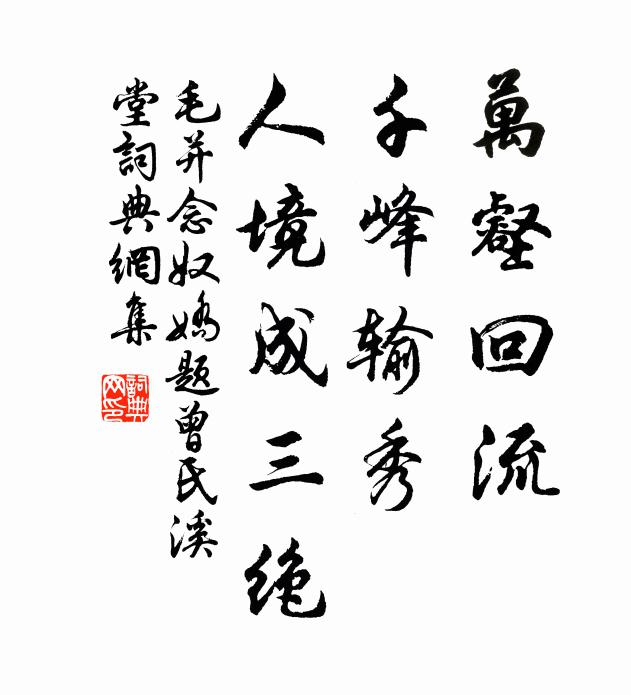 萬壑回流
千峰输秀
人境成三绝
毛并念奴嬌題曾氏溪
堂詞典網集
詞典网印